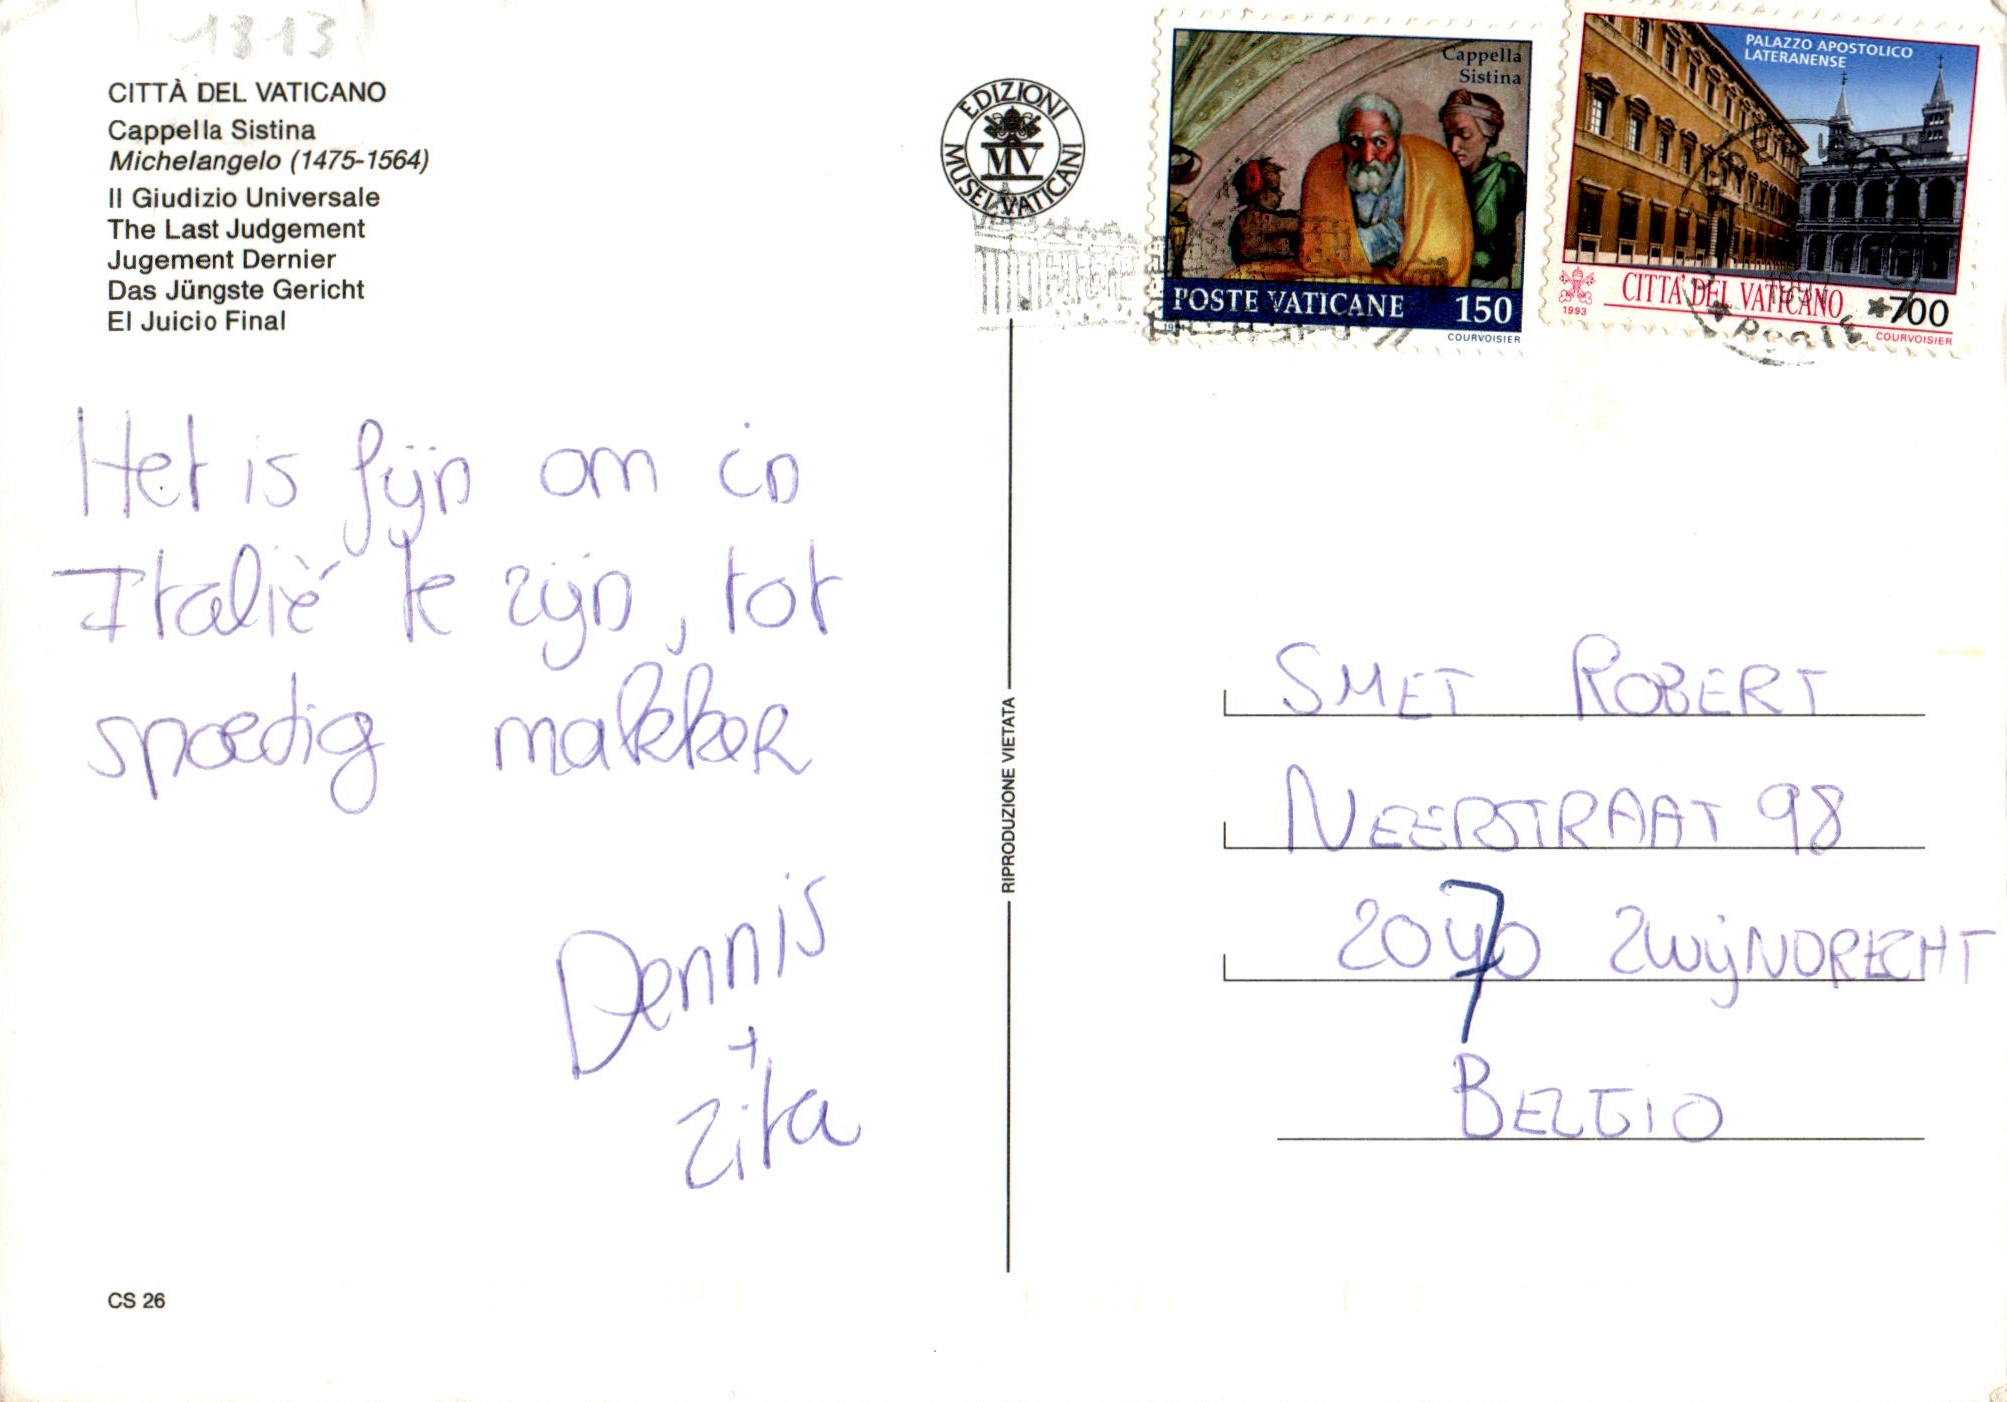 1813
CITTÀ DEL VATICANO
Cappella Sistina
Michelangelo (1475-1564)
Il Giudizio Universale
The Last Judgement
Jugement Dernier
Das Jüngste Gericht
El Juicio Final
Het is fijn om in
Italië te zijn, tot
spoedig makker
Dennis
+
Zita
CS 26
EDIZIONI
MV
MUSEI VATICANI
RIPRODUZIONE VIETATA
Cappella
Sistina
POSTE VATICANE 150
COURVOISIER
PALAZZO APOSTOLICO
LATERANENSE
CITTÀ DEL VATICANO 700
1993
COURVOISIER
SMET ROBERT
NEERSTRAAT 98
2070 ZWIJNDRECHT
BELGIO